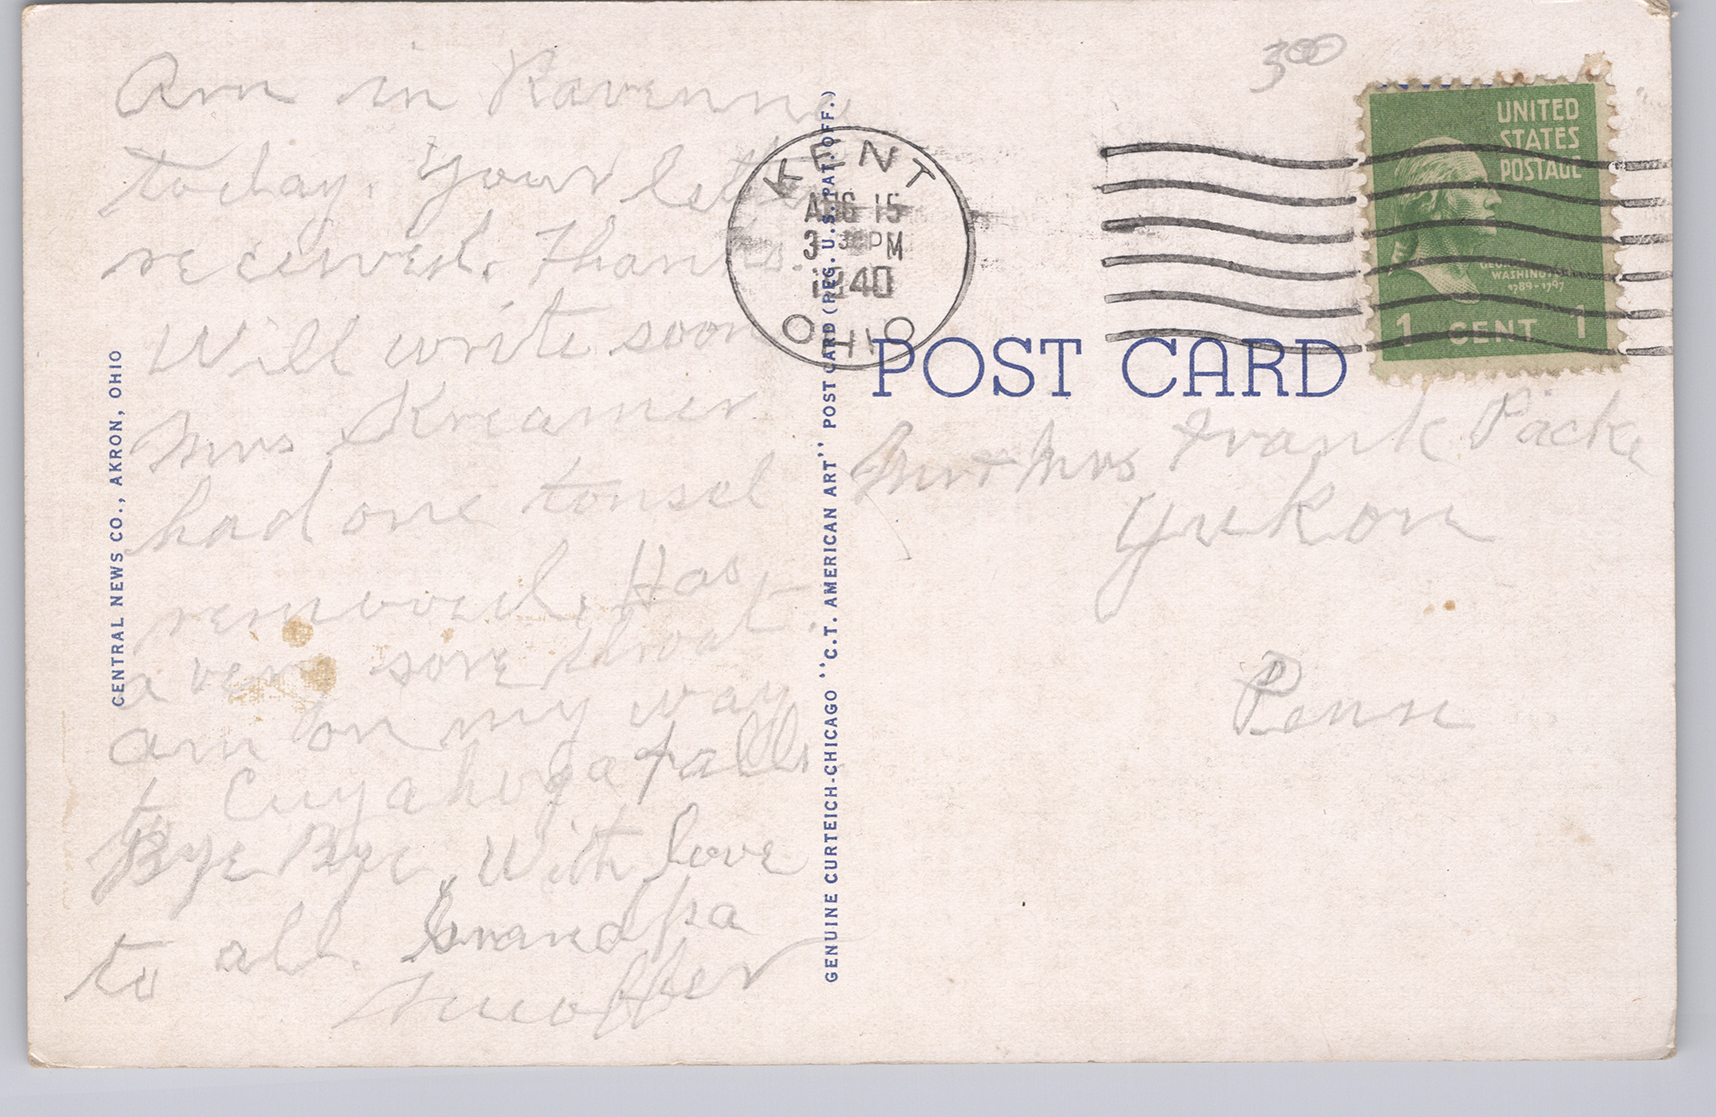 Am in Ravenna
today. Your letter
received. Thanks.
Will write soon
Mrs Kreamer
had one tonsel
removed. Has
a very sore throat.
am on my way
to Cuyahoga Falls.
Bye Bye. With love
to all. Grandpa
CENTRAL NEWS CO., AKRON, OHIO
GENUINE CURTEICH-CHICAGO "C.T. AMERICAN ART" POST CARD (REG. U.S. PAT. OFF.)
KENT
AUG 15
3 30 PM
1940
OHIO
300
UNITED
STATES
POSTAGE
GEORGE
WASHINGTON
1789-1797
1 CENT 1
POST CARD
Mr + Mrs Frank Packe
Yukon
Penn